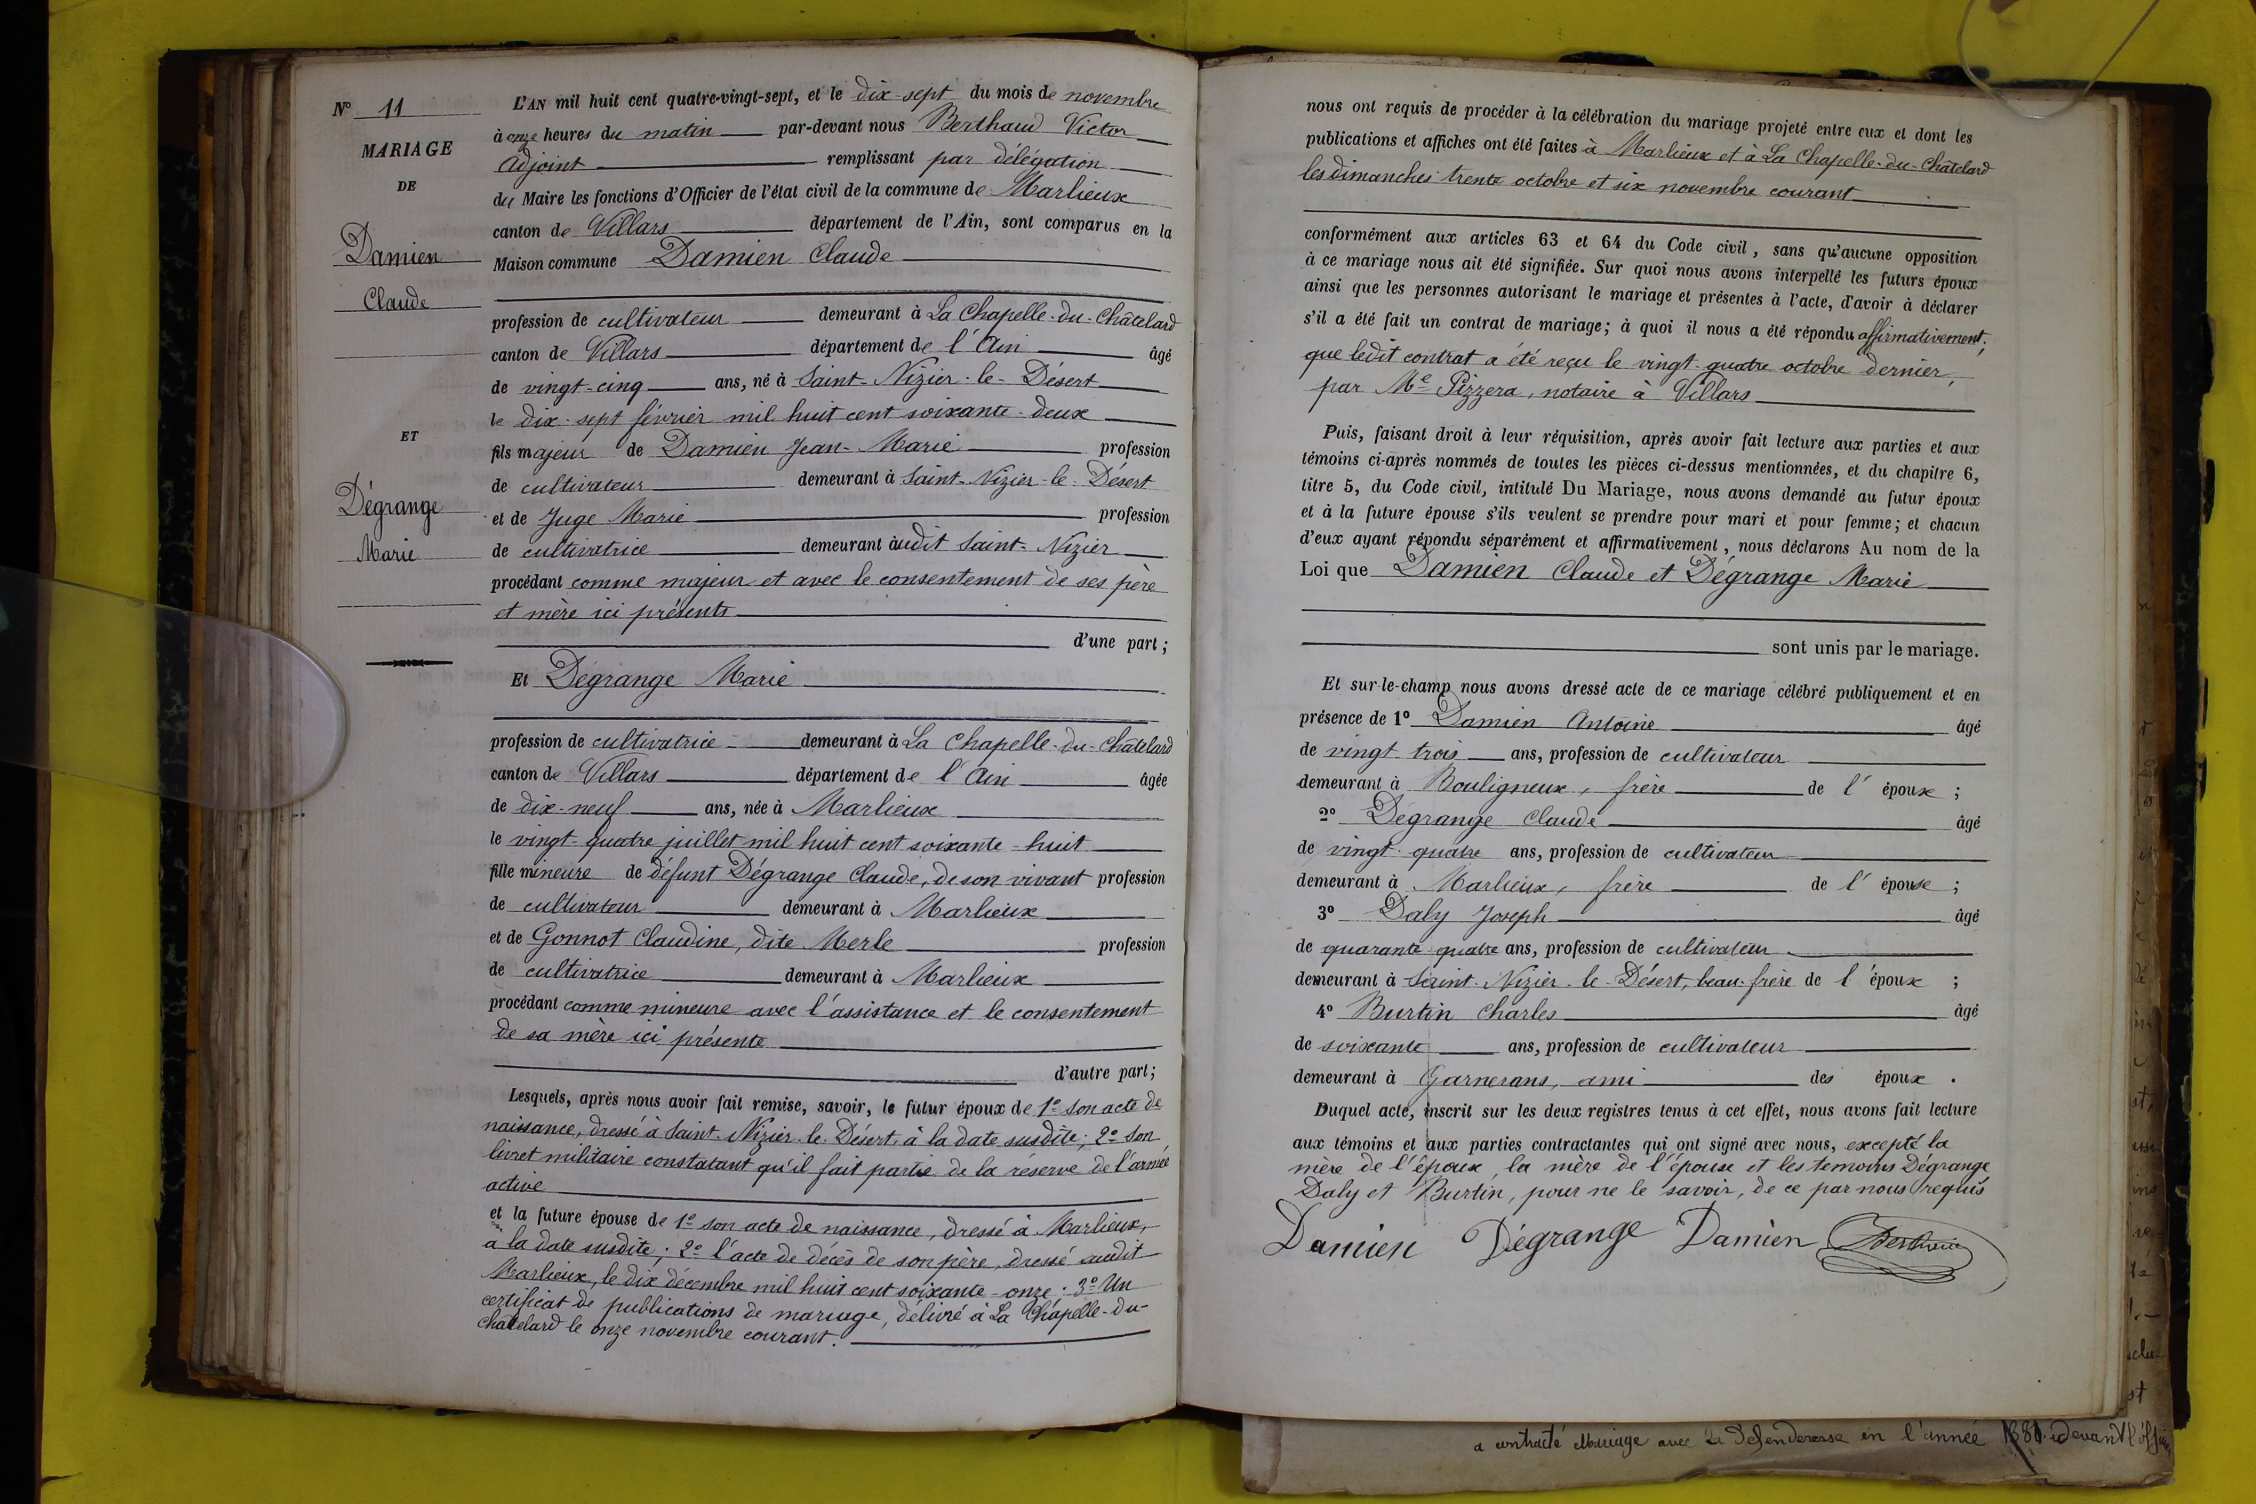 N° 11
MARIAGE
DE
Damien
Claude
ET
Dégrange
Marie
L'AN mil huit cent quatre-vingt-sept, et le dix-sept du mois de novembre
à onze heures du matin par-devant nous Berthaud Victor
Adjoint remplissant par délégation
du Maire les fonctions d'Officier de l'état civil de la commune de Marlieux
canton de Villars département de l'Ain, sont comparus en la
Maison commune Damien Claude
profession de cultivateur demeurant à La Chapelle-du-Châtelard
canton de Villars département de l'Ain âgé
de vingt-cinq ans, né à Saint-Nizier-le-Désert
le dix-sept février mil huit cent soixante-deux
fils majeur de Damien Jean-Marie profession
de cultivateur demeurant à Saint-Nizier-le-Désert
et de Juge Marie profession
de cultivatrice demeurant audit Saint-Nizier
procédant comme majeur et avec le consentement de ses père
et mère ici présents
d'une part ;
Et Dégrange Marie
profession de cultivatrice demeurant à La Chapelle-du-Châtelard
canton de Villars département de l'Ain âgée
de dix-neuf ans, née à Marlieux
le vingt-quatre juillet mil huit cent soixante-huit
fille mineure de défunt Dégrange Claude, de son vivant profession
de cultivateur demeurant à Marlieux
et de Gonnot Claudine, dite Merle profession
de cultivatrice demeurant à Marlieux
procédant comme mineure avec l'assistance et le consentement
de sa mère ici présente
d'autre part ;
Lesquels, après nous avoir fait remise, savoir, le futur époux de 1° son acte de
naissance, dressé à Saint-Nizier-le-Désert, à la date susdite ; 2° Son
livret militaire constatant qu'il fait partie de la réserve de l'armée
active
et la future épouse de 1° son acte de naissance, dressé à Marlieux,
à la date susdite ; 2° l'acte de décès de son père, dressé audit
Marlieux, le dix décembre mil huit cent soixante-onze ; 3° Un
certificat de publications de mariage, délivré à La Chapelle-du-
Châtelard le onze novembre courant.
nous ont requis de procéder à la célébration du mariage projeté entre eux et dont les
publications et affiches ont été faites à Marlieux et à La Chapelle-du-Châtelard
les dimanches trente octobre et six novembre courant
conformément aux articles 63 et 64 du Code civil, sans qu'aucune opposition
à ce mariage nous ait été signifiée. Sur quoi nous avons interpellé les futurs époux
ainsi que les personnes autorisant le mariage et présentes à l'acte, d'avoir à déclarer
s'il a été fait un contrat de mariage ; à quoi il nous a été répondu affirmativement ;
que ledit contrat a été reçu le vingt-quatre octobre dernier,
par Me Pizzera, notaire à Villars
Puis, faisant droit à leur réquisition, après avoir fait lecture aux parties et aux
témoins ci-après nommés de toutes les pièces ci-dessus mentionnées, et du chapitre 6,
titre 5, du Code civil, intitulé Du Mariage, nous avons demandé au futur époux
et à la future épouse s'ils veulent se prendre pour mari et pour femme ; et chacun
d'eux ayant répondu séparément et affirmativement, nous déclarons Au nom de la
Loi que Damien Claude et Dégrange Marie
sont unis par le mariage.
Et sur-le-champ nous avons dressé acte de ce mariage célébré publiquement et en
présence de 1° Damien Antoine âgé
de vingt-trois ans, profession de cultivateur
demeurant à Bouligneux, frère de l'époux ;
2° Dégrange Claude âgé
de vingt-quatre ans, profession de cultivateur
demeurant à Marlieux, frère de l'épouse ;
3° Daly Joseph âgé
de quarante-quatre ans, profession de cultivateur
demeurant à Saint-Nizier-le-Désert, beau-frère de l'époux ;
4° Burtin Charles âgé
de soixante ans, profession de cultivateur
demeurant à Garnerans, ami des époux.
Duquel acte, inscrit sur les deux registres tenus à cet effet, nous avons fait lecture
aux témoins et aux parties contractantes qui ont signé avec nous, excepté la
mère de l'époux, la mère de l'épouse et les témoins Dégrange
Daly et Burtin, pour ne le savoir, de ce par nous requis
Damien Dégrange Damien Berthaud
a contracté Mariage avec la défenderesse en l'année 1881 devant l'offi